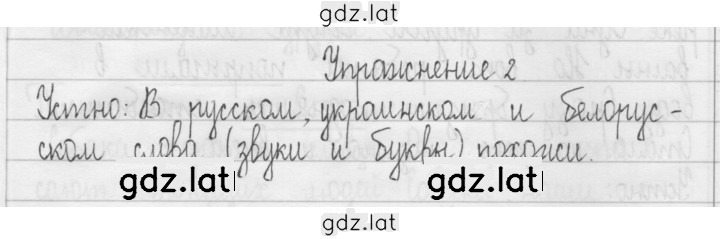 gdz.lat
Упражнение 2
Устно: В русском, украинском и белорус-
ском слова (звуки и буквы) похожи.
gdz.lat gdz.lat
gdz.lat